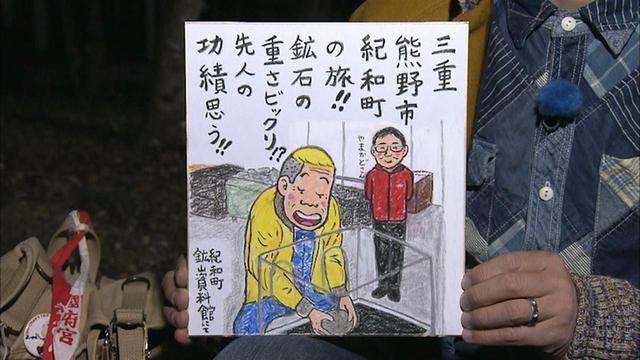 三重
熊野市
紀和町
の旅!!
鉱石の
重さビックリ!?
先人の
功績思う!!
やまかどさん
紀和町
鉱山資料館にて